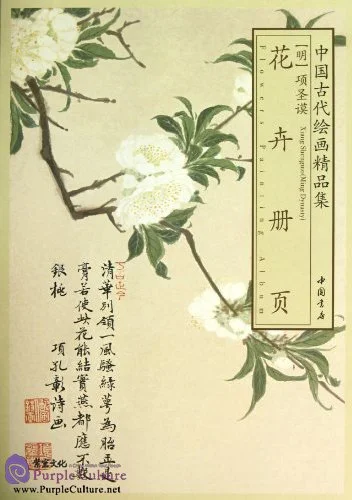 中国古代绘画精品集
[明]项圣谟
Xiang Shengmo(Ming Dynasty)
花卉册页
Flowers Painting Album
中国书店
清華别領一風騷緑萼為胎玉
膏若使此花能結實燕都應不
銀桃 項孔彰詩画
文化
PurpleCulture
www.PurpleCulture.net